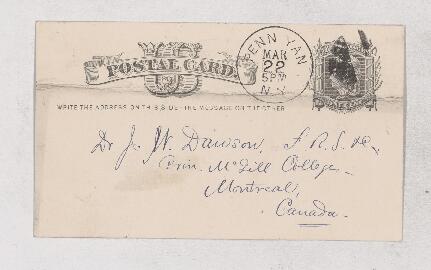 POSTAL CARD
PENN YAN
MAR
22
5PM
N.Y.
WRITE THE ADDRESS ON THIS SIDE - THE MESSAGE ON THE OTHER
Dr J. W. Dawson, F.R.S. &c.,
Prin. McGill College,
Montreal,
Canada.